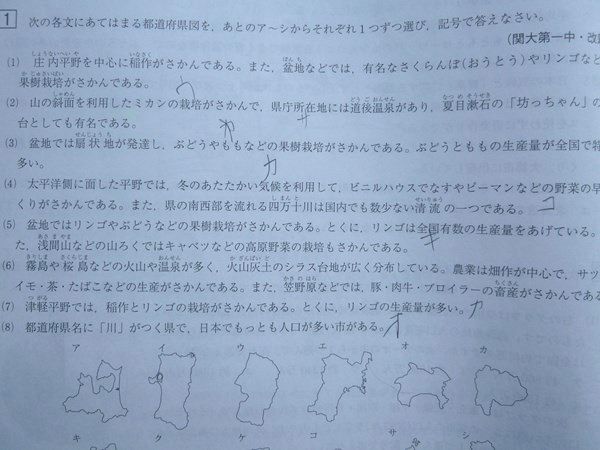 1 次の各文にあてはまる都道府県図を，あとのア〜シからそれぞれ1つずつ選び，記号で答えなさい。
(関大第一中・改
(1) 庄内平野を中心に稲作がさかんである。また，盆地などでは，有名なさくらんぼ(おうとう)やリンゴなど
果樹栽培がさかんである。
(2) 山の斜面を利用したミカンの栽培がさかんで，県庁所在地には道後温泉があり，夏目漱石の「坊っちゃん」の
台としても有名である。
(3) 盆地では扇状地が発達し，ぶどうやももなどの果樹栽培がさかんである。ぶどうとももの生産量が全国で特
多い。
(4) 太平洋側に面した平野では，冬のあたたかい気候を利用して，ビニルハウスでなすやピーマンなどの野菜の早
くりがさかんである。また，県の南西部を流れる四万十川は国内でも数少ない清流の一つである。コ
(5) 盆地ではリンゴやぶどうなどの果樹栽培がさかんである。とくに，リンゴは全国有数の生産量をあげている。
た，浅間山などの山ろくではキャベツなどの高原野菜の栽培もさかんである。
(6) 霧島や桜島などの火山や温泉が多く，火山灰土のシラス台地が広く分布している。農業は畑作が中心で，サツ
イモ・茶・たばこなどの生産がさかんである。また，笠野原などでは，豚・肉牛・ブロイラーの畜産がさかんである
(7) 津軽平野では，稲作とリンゴの栽培がさかんである。とくに，リンゴの生産量が多い。
(8) 都道府県名に「川」がつく県で，日本でもっとも人口が多い市がある。
ア イ ウ エ オ カ
キ ク ケ コ サ シ